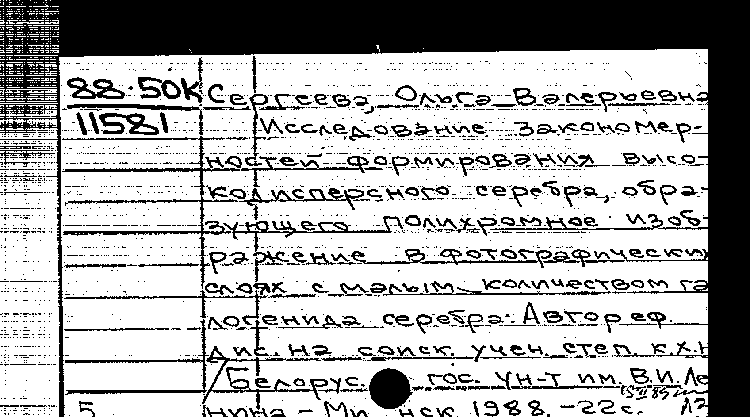 88-50К Сергеева, Ольга Валерьевна
11581 Исследование закономер-
ностей формирования высо-
кодисперсного серебра, обра-
зующего полихромное изоб-
ражение в фотографических
слоях с малым количеством га
логенида серебра: Автореф.
дис. на соиск. учен. степ. к.х.н
Белорус. гос. ун-т им. В.И. Ле
5 нина - Минск 1988. - 22с.